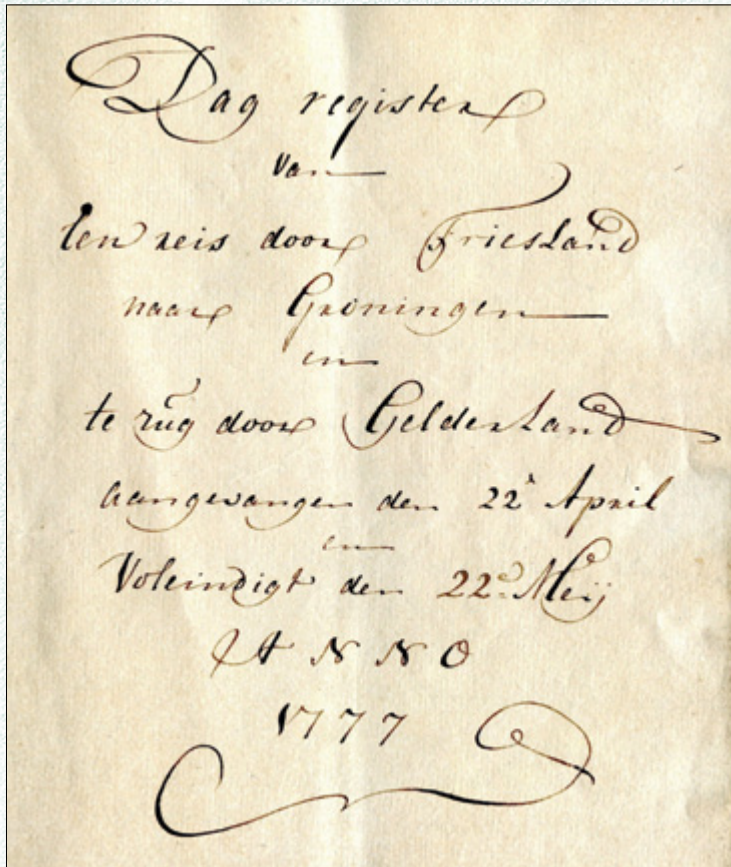 Dag register
van
Een reis door Friesland
naar Groningen
en
te rúg door Gelderland
aangevangen den 22e April
en
Voleindigt den 22e Meij
ANNO
1777